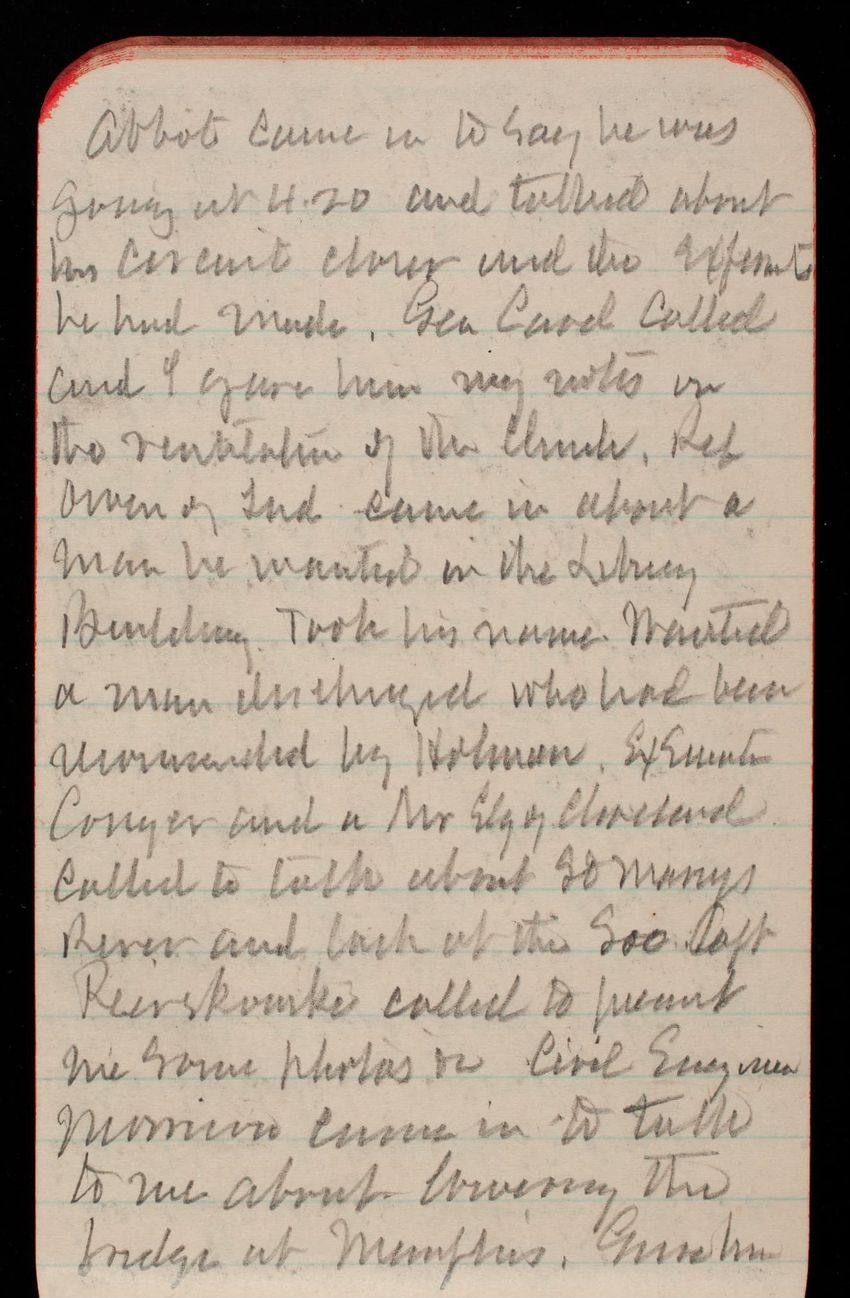 Abbot came in to say he was
going at 4.20 and talked about
his Circuit closer and the Expermts
he had made. Gen Casol Called
and I gave him my notes on
the ventilation of the Church. Rep
Owen of Ind came in about a
man he wanted in the Library
Building. Took his name. Wanted
a man discharged who had been
recommended by Holman. Ex
Conger and a Mr Ely of Cleveland
Called to talk about St Marys
River and lock at the Soo. Capt
called to present
me some photos &c Civil Engineer
Morrison came in to talk
to me about lowering the
bridge at Memphis. Gave him